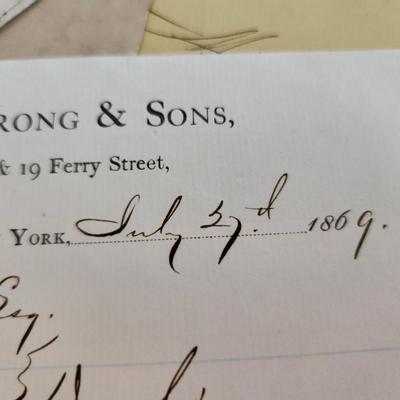 RONG & SONS,
& 19 Ferry Street,
YORK, July 27.d 1869.
Esq.